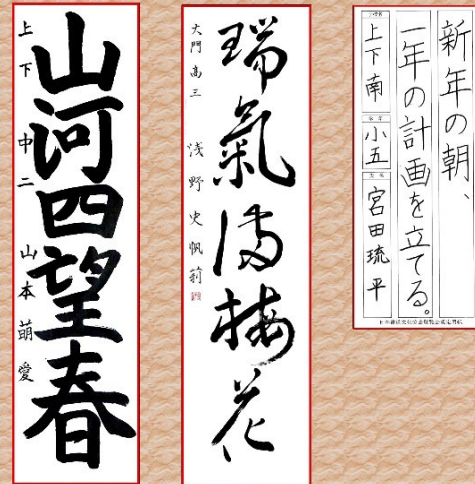 新年の朝、
一年の計画を立てる。
上下南 小五 宮田琉平
瑞氣満梅花
大門高三 浅野史帆莉
山河四望春
上下中二 山本萌愛